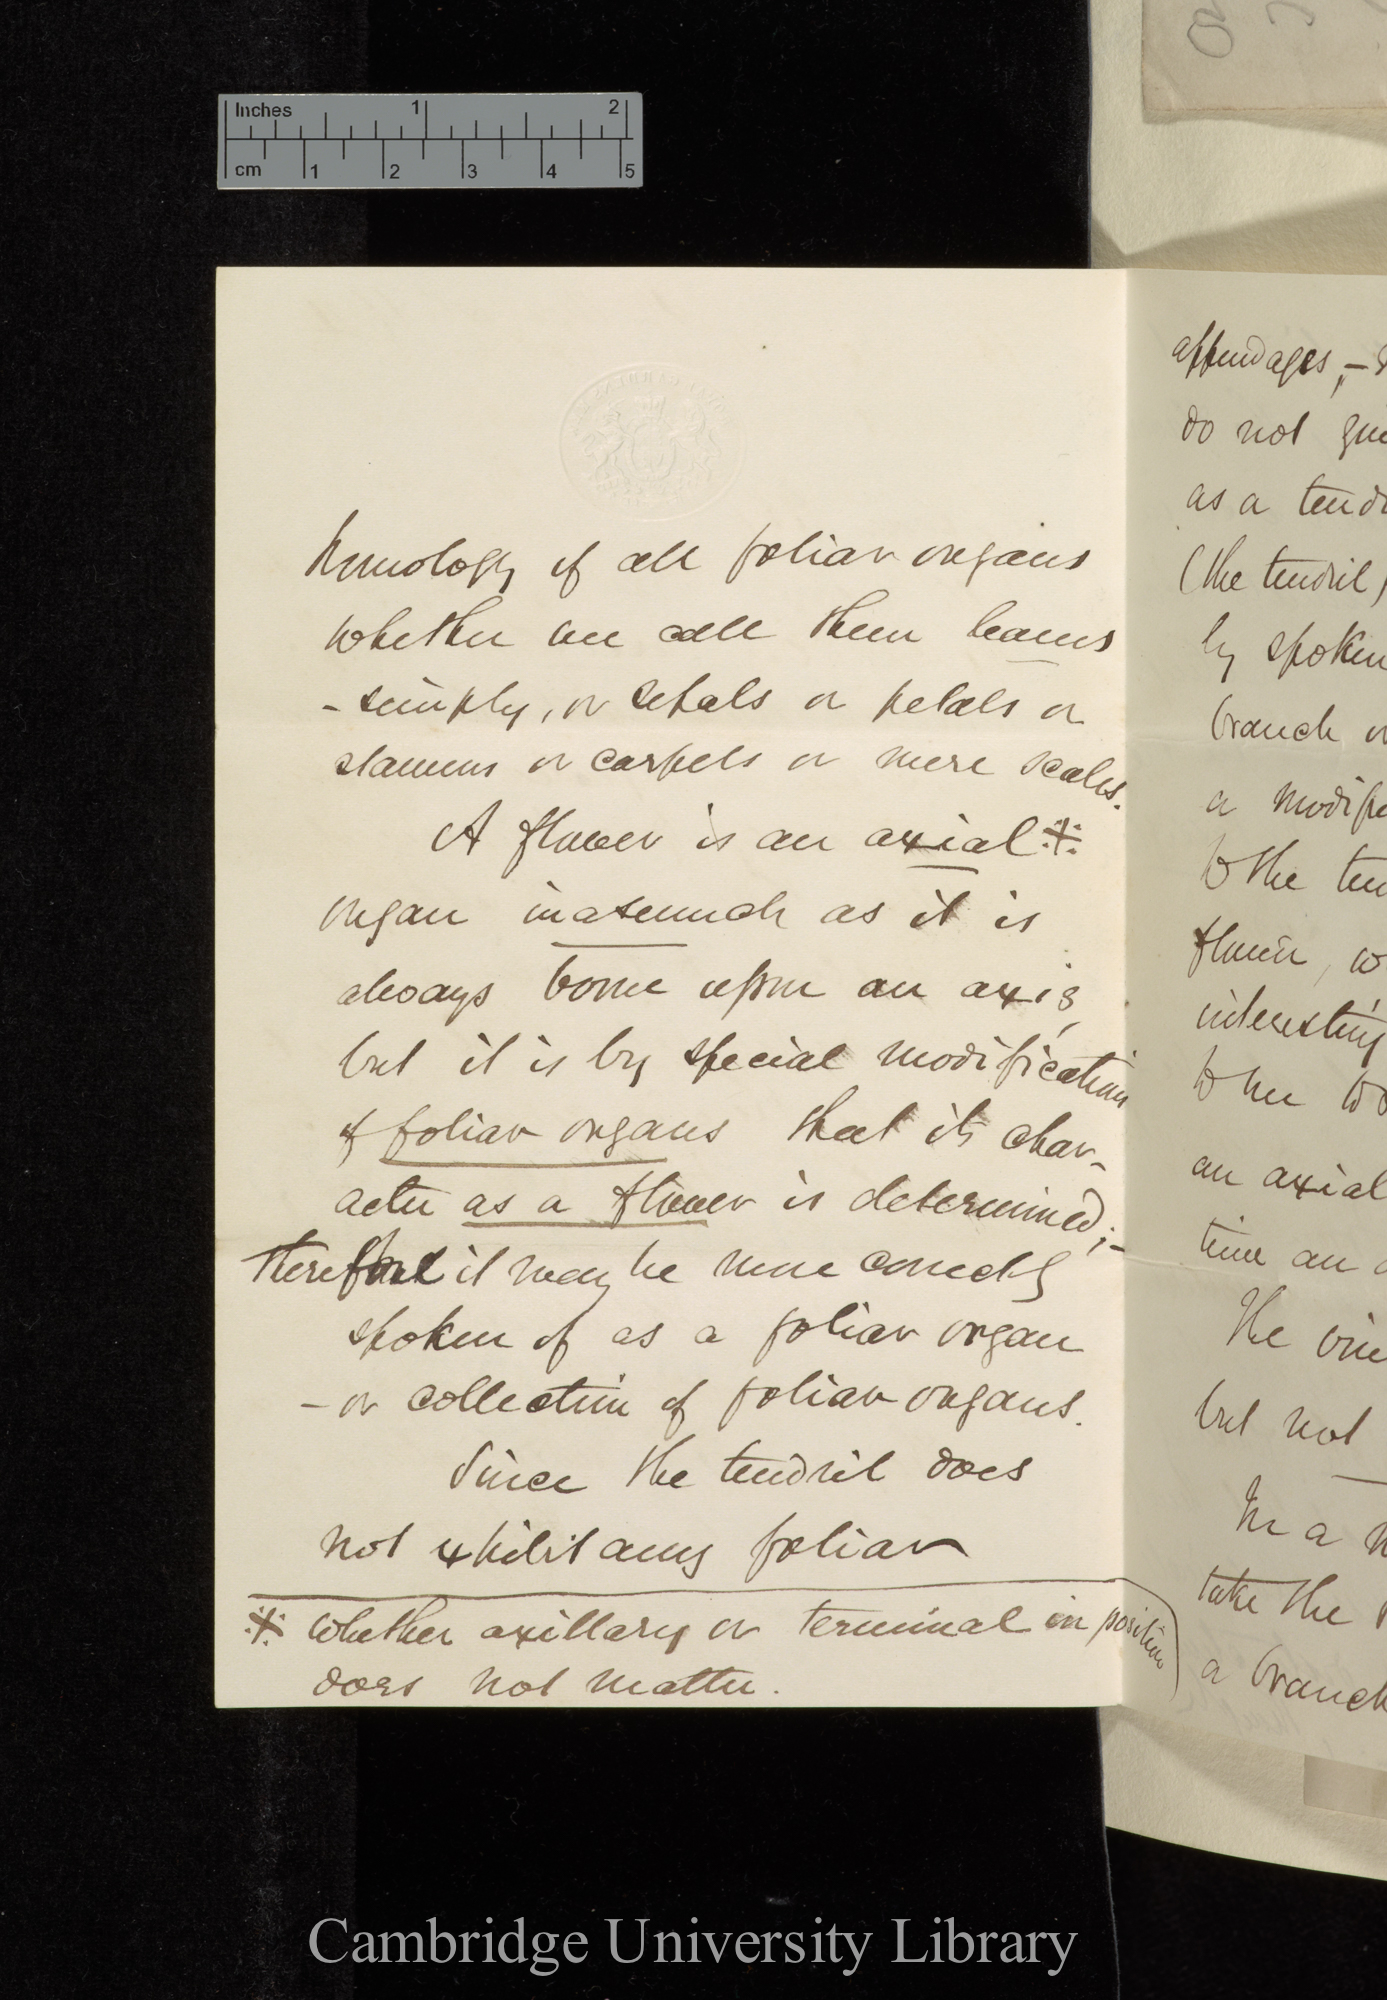 Inches 1 2
cm 1 2 3 4 5
homology of all foliar organs
whether we call them leaves
- simply, or sepals or petals or
stamens or carpels or mere scales.
A flower is an axial ※
organ inasmuch as it is
always borne upon an axis,
but it is by special modification
of foliar organs that its char-
acter as a flower is determined;-
therefore it may be more correctly
spoken of as a foliar organ
- or collection of foliar organs.
Since the tendril does
not exhibit any foliar
※ whether axillary or terminal in position
does not matter.
appendages, -
do not
as a
(the tendril)
by spoken
branch or
a
to the
flower,
interesting
to me
an axial
time an
The
but not
In a
take the
a branch
Cambridge University Library